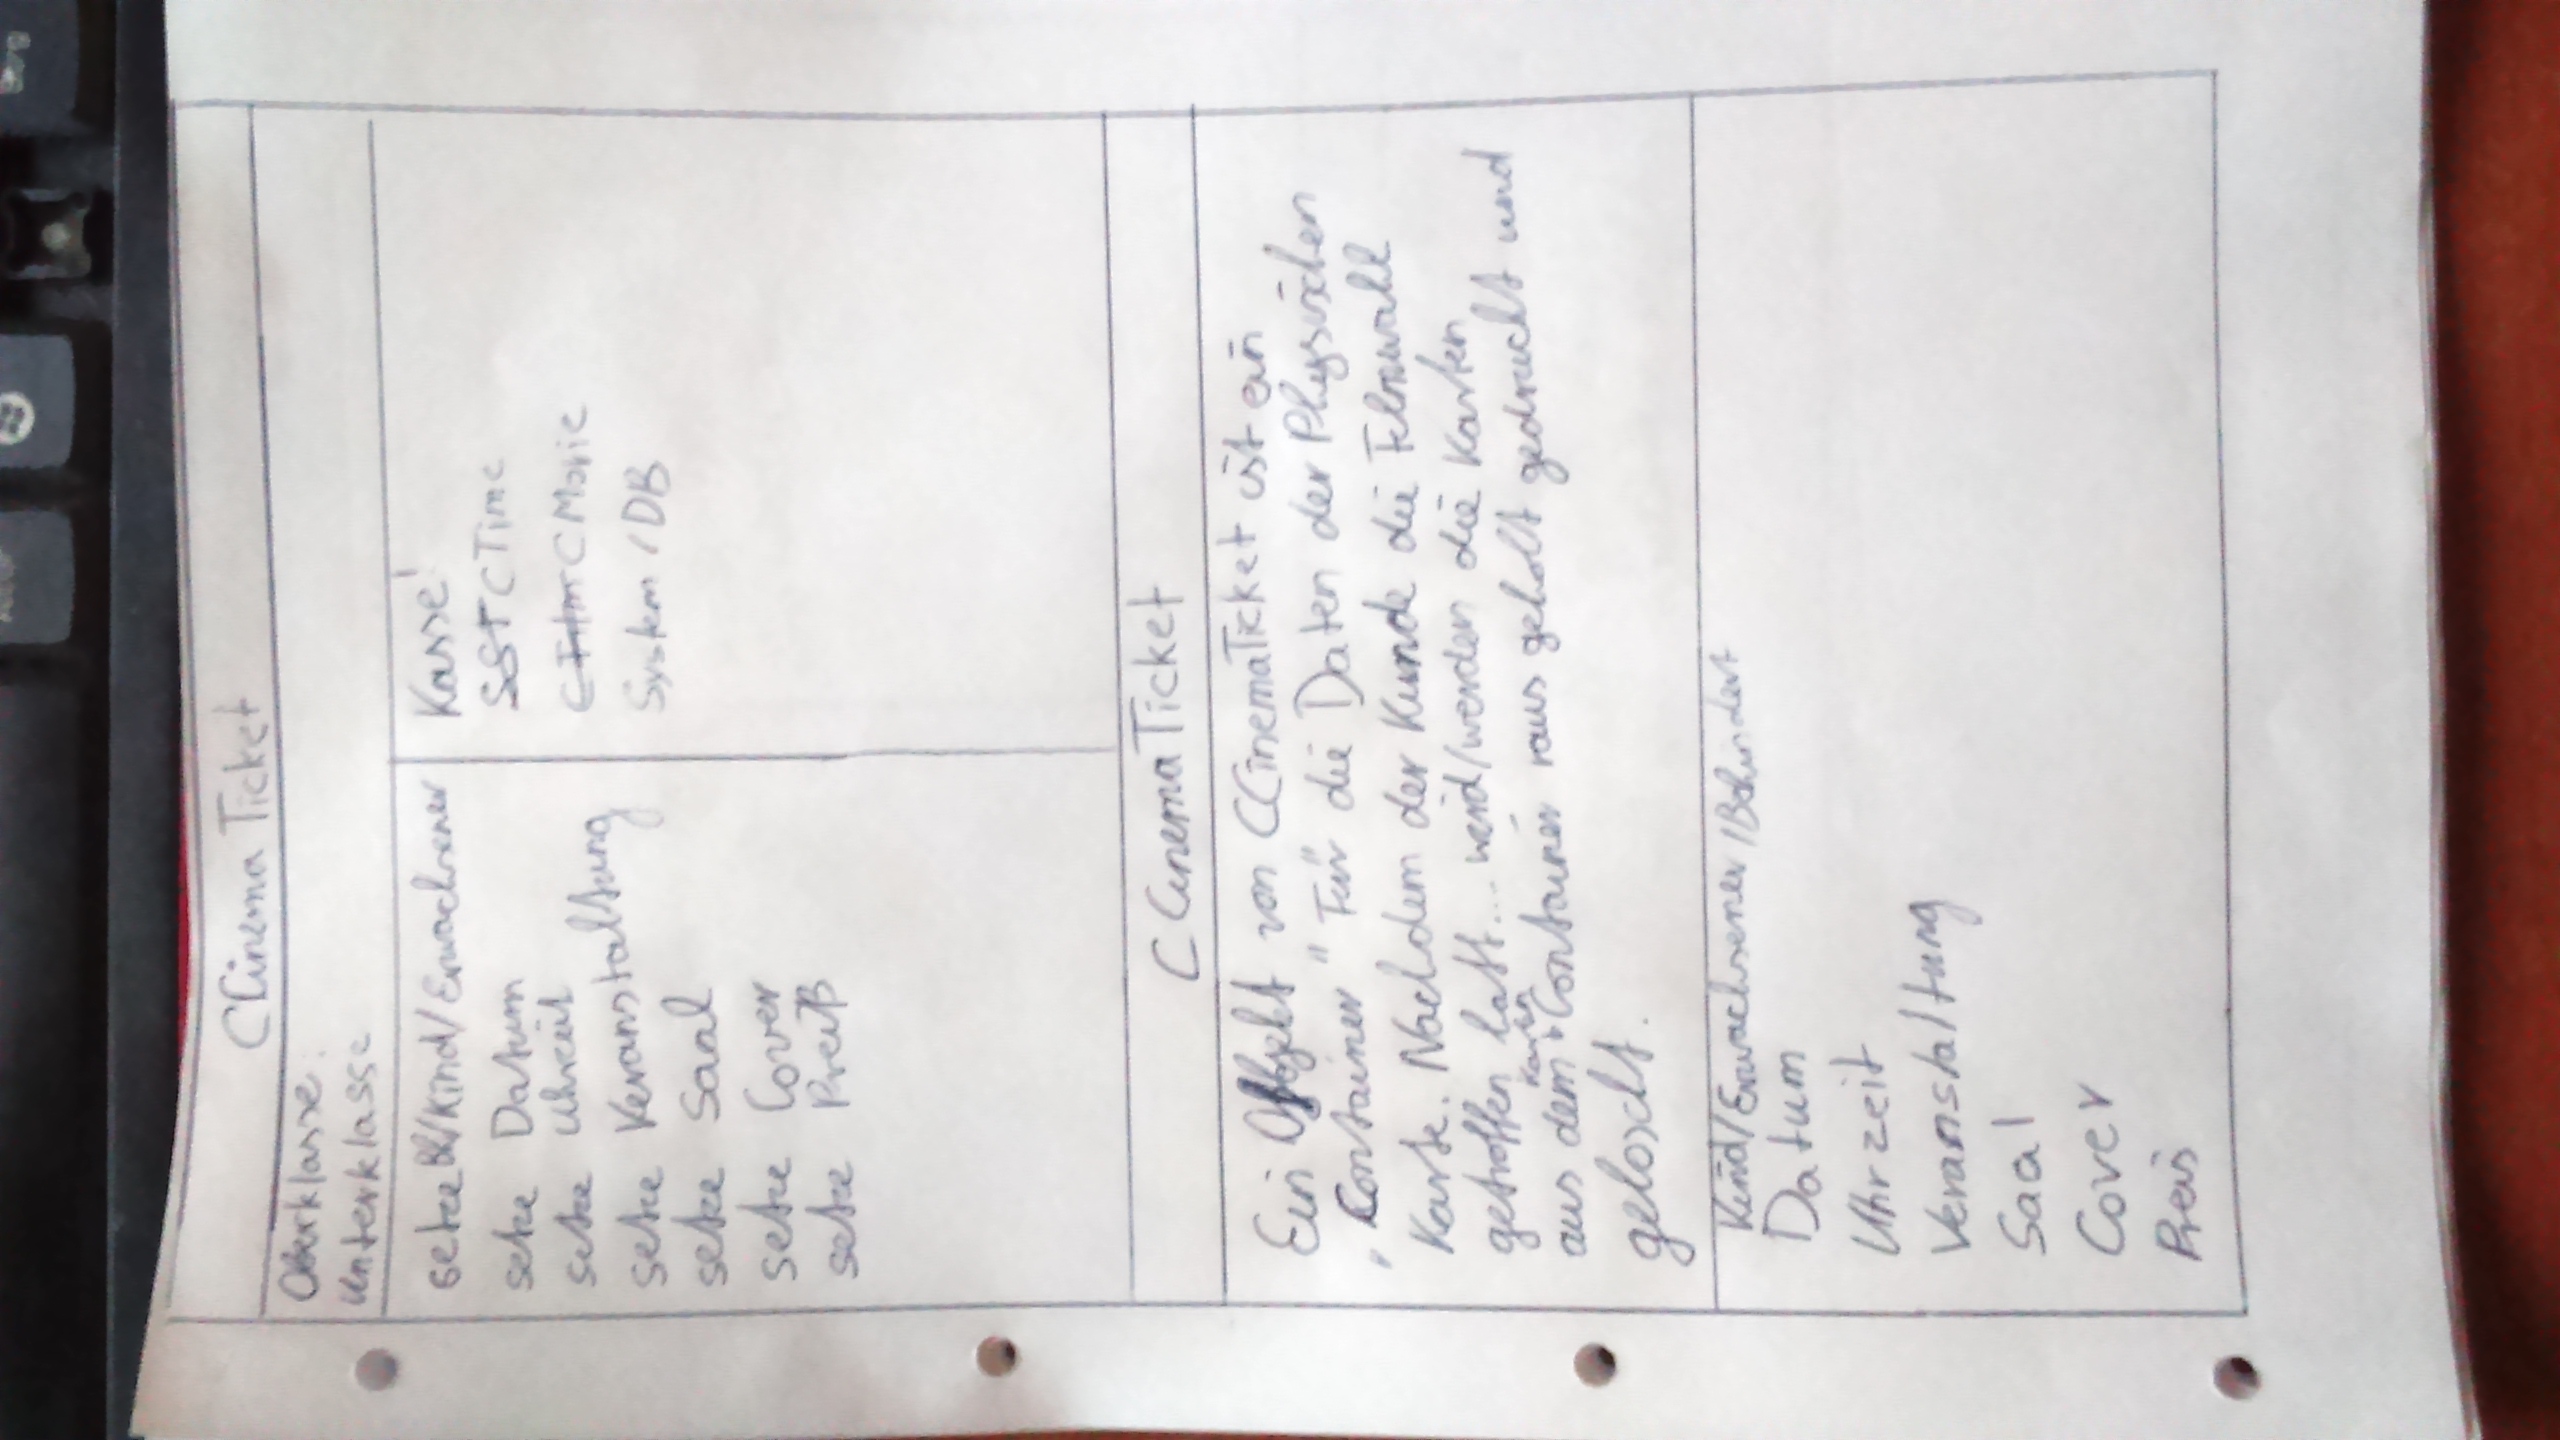 Strg
CCinemaTicket
Oberklasse:
Unterklasse
setze Bh/Kind/Erwachsener
setze Datum
setze Uhrzeit
setze Veranstaltung
setze Saal
setze Cover
setze Preiß
Kasse!
SST CTime
C Film CMovie
System / DB
CCinemaTicket
Ein Objekt von CCinemaTicket ist ein
„Container" Für die Daten der Physischen
Karte. Nachdem der Kunde die Filmwahl
getroffen hatt... wird/werden die Karten
aus dem Karten Container raus geholt gedruckt und
geloscht.
Kind/Erwachsener/Behindert
Datum
Uhrzeit
Veranstaltung
Saal
Cover
Preis